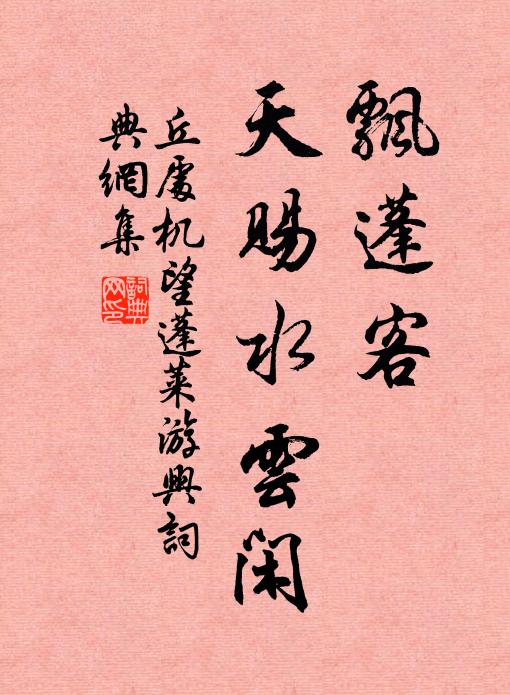 飄蓬客
天賜水雲閑
丘處机望蓬萊游興詞
典網集
詞典网印